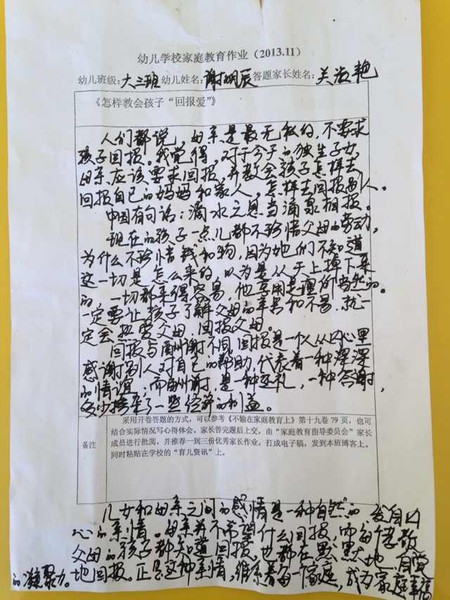 幼儿学校家庭教育作业（2013.11）
幼儿班级：大三班 幼儿姓名：谢明辰 答题家长姓名：吴淑艳
《怎样教会孩子“回报爱”》
人们都说，母亲是最无私的，不需求
孩子回报。我觉得，对于今天的独生子女
母亲应该要求回报，并教会孩子怎样去
回报自己的妈妈和家人，怎样去回报别人。
中国有句话：滴水之恩当涌泉相报。
现在的孩子一点儿都不珍惜父母的劳动，
为什么不珍惜钱和物，因为他们不知道
这一切是怎么来的，以为是从天上掉下来
的，一切都来得容易，他享用是理所当然的。
一定要让孩子了解父母的辛劳和不易，就一
定会热爱父母，回报父母。
回报与酬谢不同，回报是一个人从心里
感谢别人对自己的帮助，代表着一种深深
的情谊，而酬谢，是一种还礼，一种答谢，
或掺了一些经济的利益。
采用开卷答题的方式，可以参考《不输在家庭教育上》第十九卷79页，也可
结合实际情况写心得体会。家长答完题后上交，由“家庭教育指导委员会”家长
备注 成员进行批阅，并推荐一到三份优秀家长作业，打成电子稿，发到本班博客上，
同时粘贴在学校的“育儿资讯”上。
儿女和母亲之间的感情是一种自然的、发自内
心的亲情。母亲并不希望什么回报，而每个孝敬
父母的孩子都知道回报，也都在默默地
地回报。正是这种亲情，维系着每个家庭，成为家庭幸福
的凝聚力。